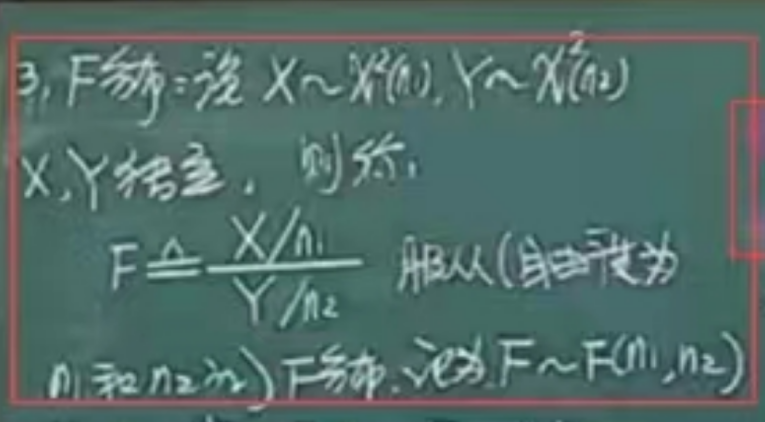 3, F分布：设 X～χ²(n₁), Y～χ²(n₂)
X, Y 独立, 则称,
F ≜ (X/n₁)/(Y/n₂) 服从(自由度为
n₁和n₂的) F分布, 记为 F～F(n₁, n₂)